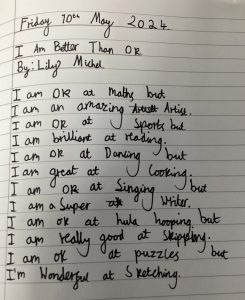 Friday 10th May 2024.
I Am Better Than OK
By: Lily Michel.
I am OK at Maths but
I am an amazing Artist.
I am OK at Sports but
I am brilliant at reading.
I am OK at Dancing but
I am great at Cooking.
I am OK at Singing but
I am a Super Writer.
I am ok at hula hooping but
I am really good at Skipping.
I am ok at puzzles but
I'm Wonderful at Sketching.